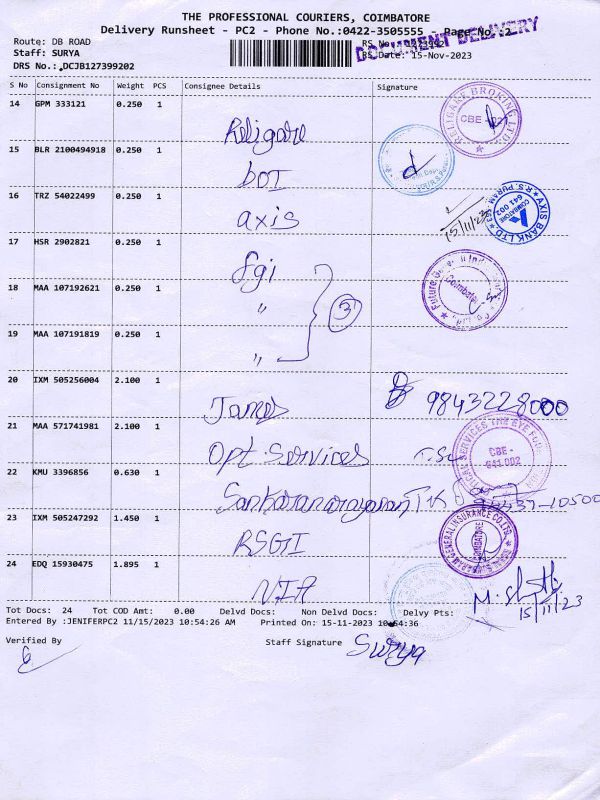 THE PROFESSIONAL COURIERS, COIMBATORE
Delivery Runsheet - PC2 - Phone No.:0422-3505555 - Page No. 2
DOCUMENT DELIVERY
Route: DB ROAD
Staff: SURYA
RS Date: 15-Nov-2023
DRS No.: DCJB127399202
S No Consignment No Weight PCS Consignee Details Signature
14 GPM 333121 0.250 1 Religare
RELIGARE BROKING LTD CBE
15 BLR 2100494918 0.250 1 BOI
16 TRZ 54022499 0.250 1 axis
15/11/23
AXIS BANK LTD R.S. PURAM COIMBATORE 641 002
17 HSR 2902821 0.250 1 fgi
18 MAA 107192621 0.250 1 "
3
Coimbatore
19 MAA 107191819 0.250 1 "
20 IXM 505256004 2.100 1 James 9843228000
21 MAA 571741981 2.100 1 Opt. Services
SERVICES THE EYE CBE - 641 002
22 KMU 3396856 0.630 1 Sankaranarayanan T.K
23 IXM 505247292 1.450 1 RSGI
GENERAL INSURANCE CO. LTD. COIMBATORE
24 EDQ 15930475 1.895 1 NIA
15/11/23
Tot Docs: 24 Tot COD Amt: 0.00 Delvd Docs: Non Delvd Docs: Delvy Pts:
Entered By :JENIFERPC2 11/15/2023 10:54:26 AM Printed On: 15-11-2023 10:54:36
Verified By Staff Signature Surya